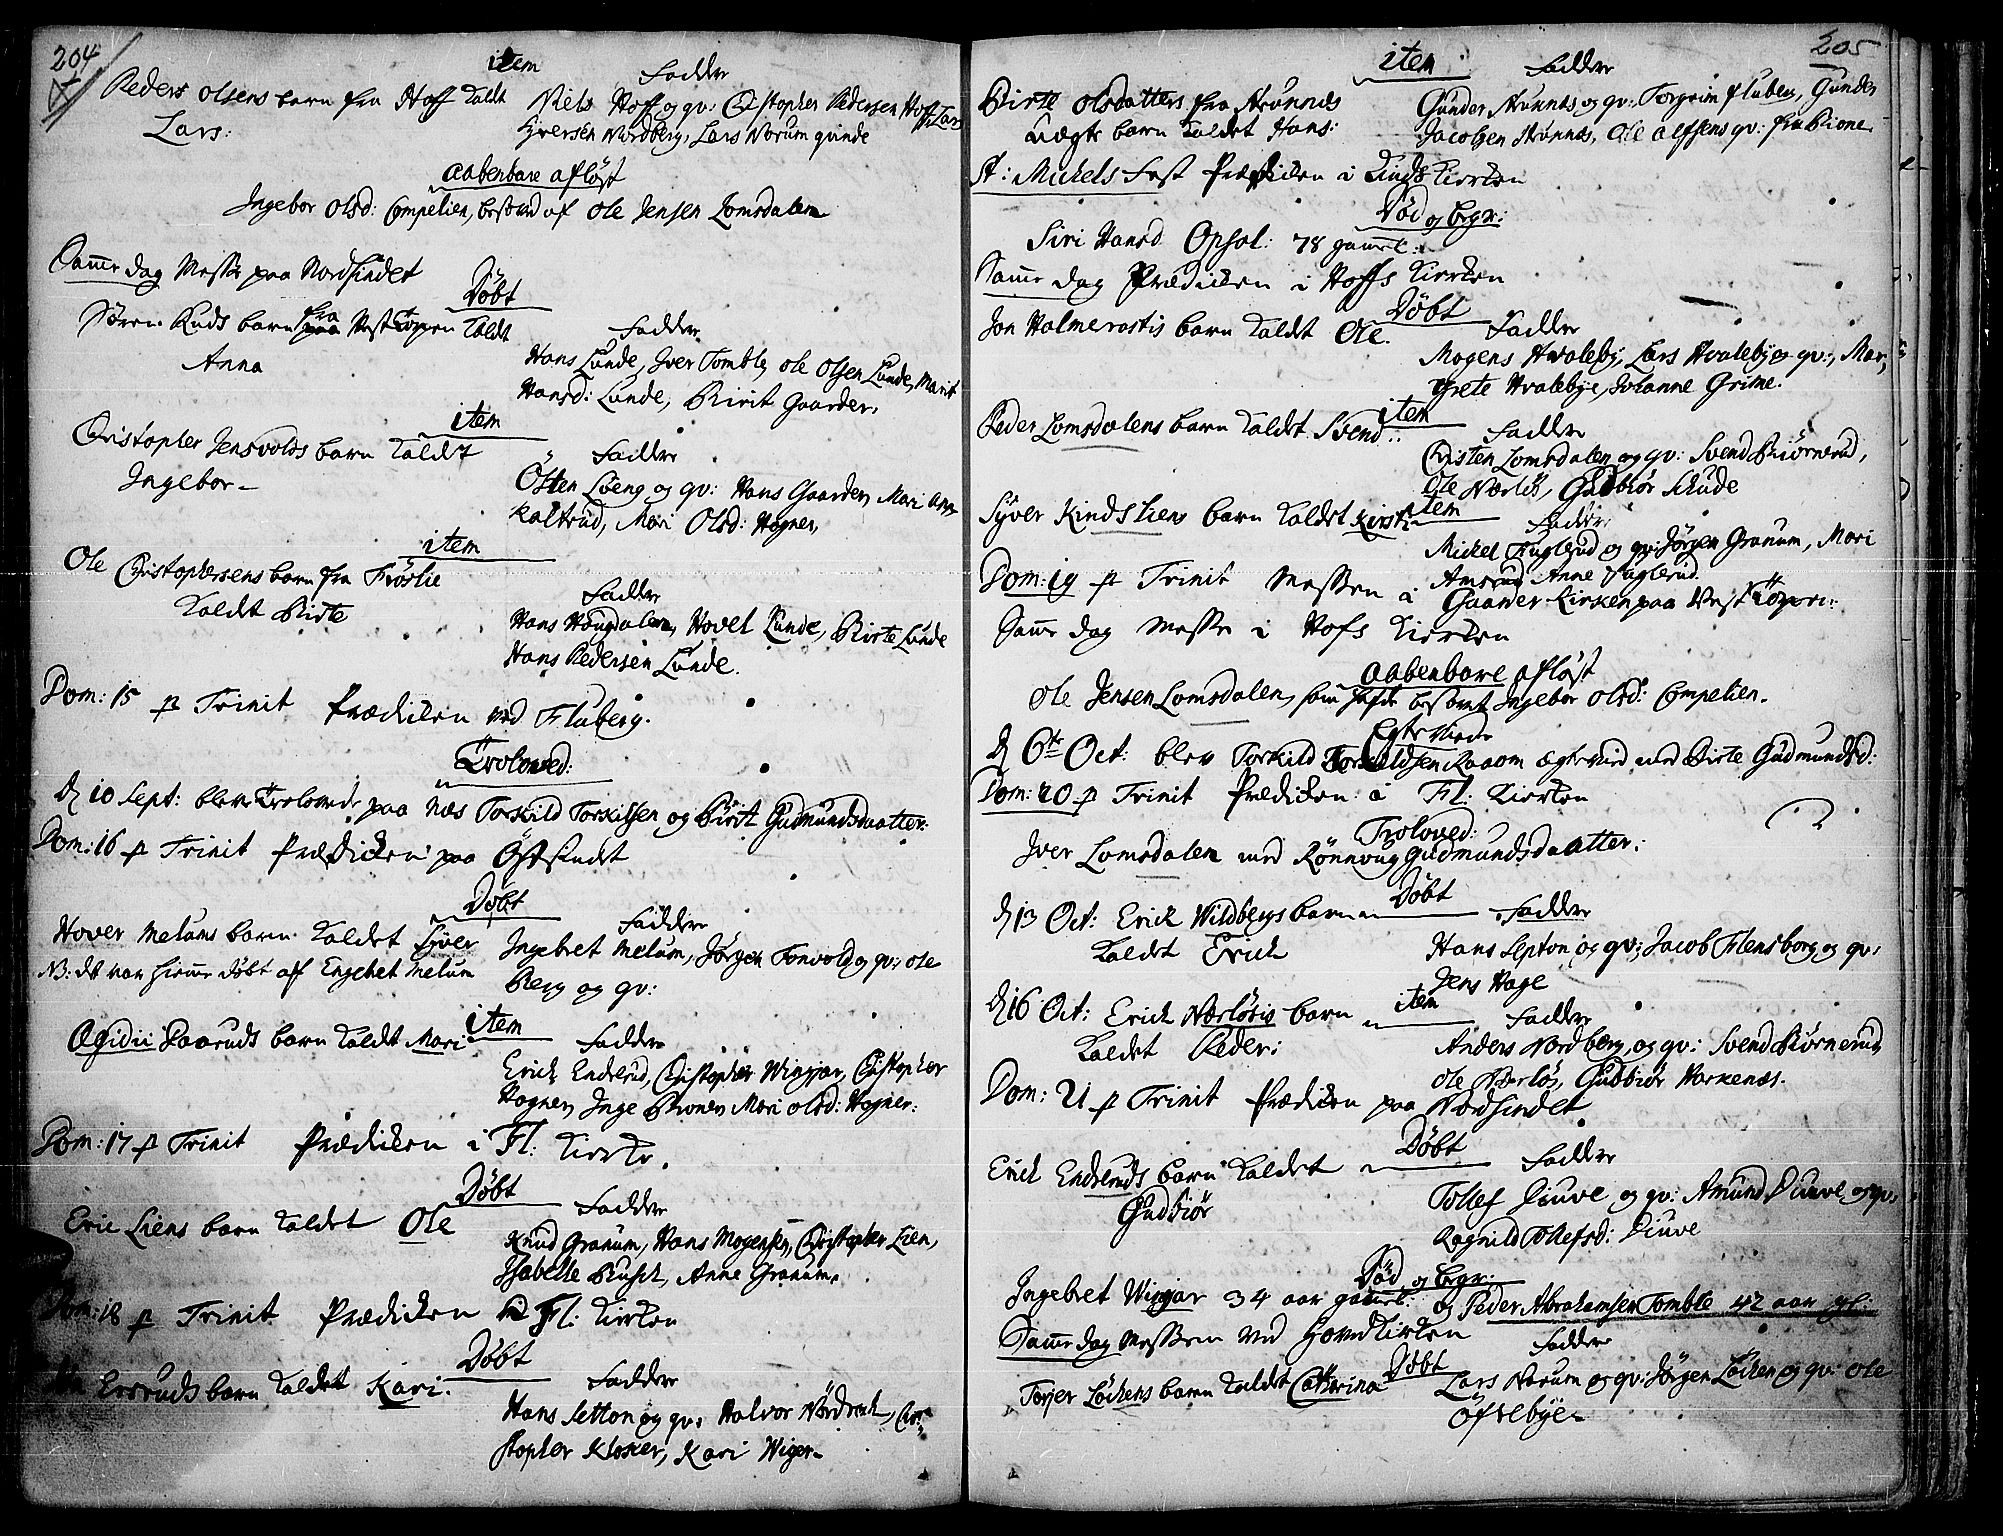 204
item
Peders Olsens barn fra Hoff kaldt
Lars:
Faddre
Niels Hoff og qv: Christopher Pedersen Hoff, Lars
Iversen Nordberg, Lars Norum qvinde
aabenbare afløst
Ingebor Olsd: Compelien, besovet af Ole Jensen Lomsdalen
Samme dag Messe paa Nordsindet
Døbt
Søren Ruds barn fra Vest Torpen kaldt
Anna
Faddre
Hans Lunde, Iver Tomble, Ole Olsen Lunde, Marit
Hansd: Lunde, Birit Gaarder.
item
Christopher Jensvolds barn kaldt
Ingebor
Faddre
Østen Løeng og qv: Hans Gaarder, Mari
Kaltrud, Mari Olsd: Hogner,
item
Ole Christophersens barn fra Frøslie
kaldt Birte
Faddre
Hans Hougdalen, Hovel Lunde, Birte Lunde
Hans Pedersen Lunde.
Dom: 15 p Trinit Prædicken ved Fluberg.
Troloved:
d 10 Sept: blev Trolovede paa Næs Torkild Torkilsen og Birit Gudmundsdaatter.
Dom: 16 p Trinit Prædicken paa Østsindet
Døbt
Hover Melums barn kaldet Syver
NB: det var hiemme døbt af Engebet Melum
Faddre
Ingebret Melum, Jørgen Tonvold og qv: Ole
Berg og qv:
item
Ægidii Paaruds barn kaldt Mari
Faddre
Erick Endrerud, Christopher Wingjar, Christopher
Hogner, Inge Bioner, Mari Olsd: Hogner.
Dom: 17 p Trinit Prædicken i Fl: Kircke.
Døbt
Eric Liens barn kaldet Ole
Faddre
Knud Granum, Hans Mogensen, Christopher Lien,
Isabelle Ruset, Anne Granum.
Dom: 18 p Trinit Prædicken ved Fl: Kircken
Døbt
Ersruds barn kaldet Kari.
Faddre
Hans Setton og qv: Halvor Nordrock, Chri-
stopher Klosker, Kari Wiger
205
item
Birte Olsdatters fra Strønnes
uægte barn kaldet Hans:
Faddre
Gunder Strønnes og qv: Torgrim Fluberg, Gunder
Jacobsen Strønnes, Ole Alfsens qv: fra Bione.
St: Mickels Fest Prædicken i Lands Kircken
Død og begr:
Siri Hansd Opsal: 78 gammel
Samme dag Prædicken i Hoffs Kircken
Døbt
Jon Halmerastis barn kaldt Ole.
Faddre
Mogens Hvaleby, Lars Hvaleby og qv: Mar-
grete Hvalebye, Johanne Grime.
item
Peder Lomsdalens barn kaldt Svend:
Faddre
Christen Lomsdalen og qv: Svend Biørnerud,
Ole Nærløs, Gudbiør Skude
item
Syver Kindsliens barn kaldet Kirsti
Faddre
Mickel Fuglerud og qv: Jørgen Granum, Mari
Amsrud Anne Fuglerud
Dom: 19 p Trinit Messen i Gaarder Kircken paa Vest Torpen:
Samme dag Messe i Hofs Kircken
aabenbare afløst
Ole Jensen Lomsdalen, som hafde besovet Ingebor Olsd: Compelien.
Egtevied
d 6te Oct: blev Torkild Torkildsen Raaom ægteviid med Birte Gudmundsd:
Dom: 20 p Trinit Prædicken i Fl: Kircken
Troloved:
Iver Lomsdalen med Rønnoug Gudmundsdaatter.
Døbt
d 13 Oct: Erick Wildbergs barn
kaldet Erick
Faddre
Hans Septon og qv: Jacob Flensborg og qv:
Jens Hage
item
d 16 Oct: Erick Nærløsis barn
kaldet Peder:
Faddre
Anders Nordberg, og qv: Svend Biørnerud
Ole Nærløs, Gudbiør Harkenæs.
Dom: 21 p Trinit Prædicken paa Nordsindet
Døbt
Erick Endreruds barn kaldet
Gudbiør
Faddre
Tollef Diuve og qv: Amund Diuve og qv:
Ragnild Tollefsd: Diuve
Død og begr:
Ingebret Wigjar 34 aar gammel: og Peder Abrahamsen Tomble 42 aar gl:
Samme dag Messen ved Hovedkircken
Døbt
Torjer Løckens barn kaldet Catharina
Faddre
Lars Norum og qv: Jørgen Løcken og qv: Ole
Øfstebye